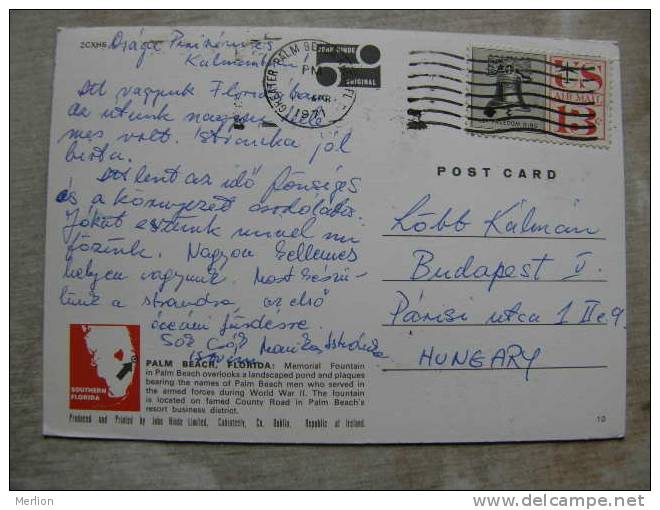 2CXH5
Drága
Kálmánkám!
Itt vagyunk Floridában
az utunk nagyon kelle
mes volt. Istvánka jól
birta.
Itt lent az idő fönséges
és a környezet csodálatos.
Jókat eszünk mivel mi
főzünk. Nagyon kellemes
helyen vagyunk. Most készü-
lünk a strandra, az első
óceáni fürdésre.
Sok Csók
István Manika Istvánka
JOHN HINDE
ORIGINAL
GREATER PALM BEACH
PM
1977
US
AIR MAIL
13
POST CARD
Löbb Kálmán
Budapest V.
Párisi utca 1 II e 9.
HUNGARY
SOUTHERN
FLORIDA
PALM BEACH, FLORIDA: Memorial Fountain
in Palm Beach overlooks a landscaped pond and plaques
bearing the names of Palm Beach men who served in
the armed forces during World War II. The fountain
is located on famed County Road in Palm Beach's
resort business district.
Produced and Printed by John Hinde Limited, Cabinteely, Co. Dublin, Republic of Ireland.
10
Merlion
www.delcampe.net